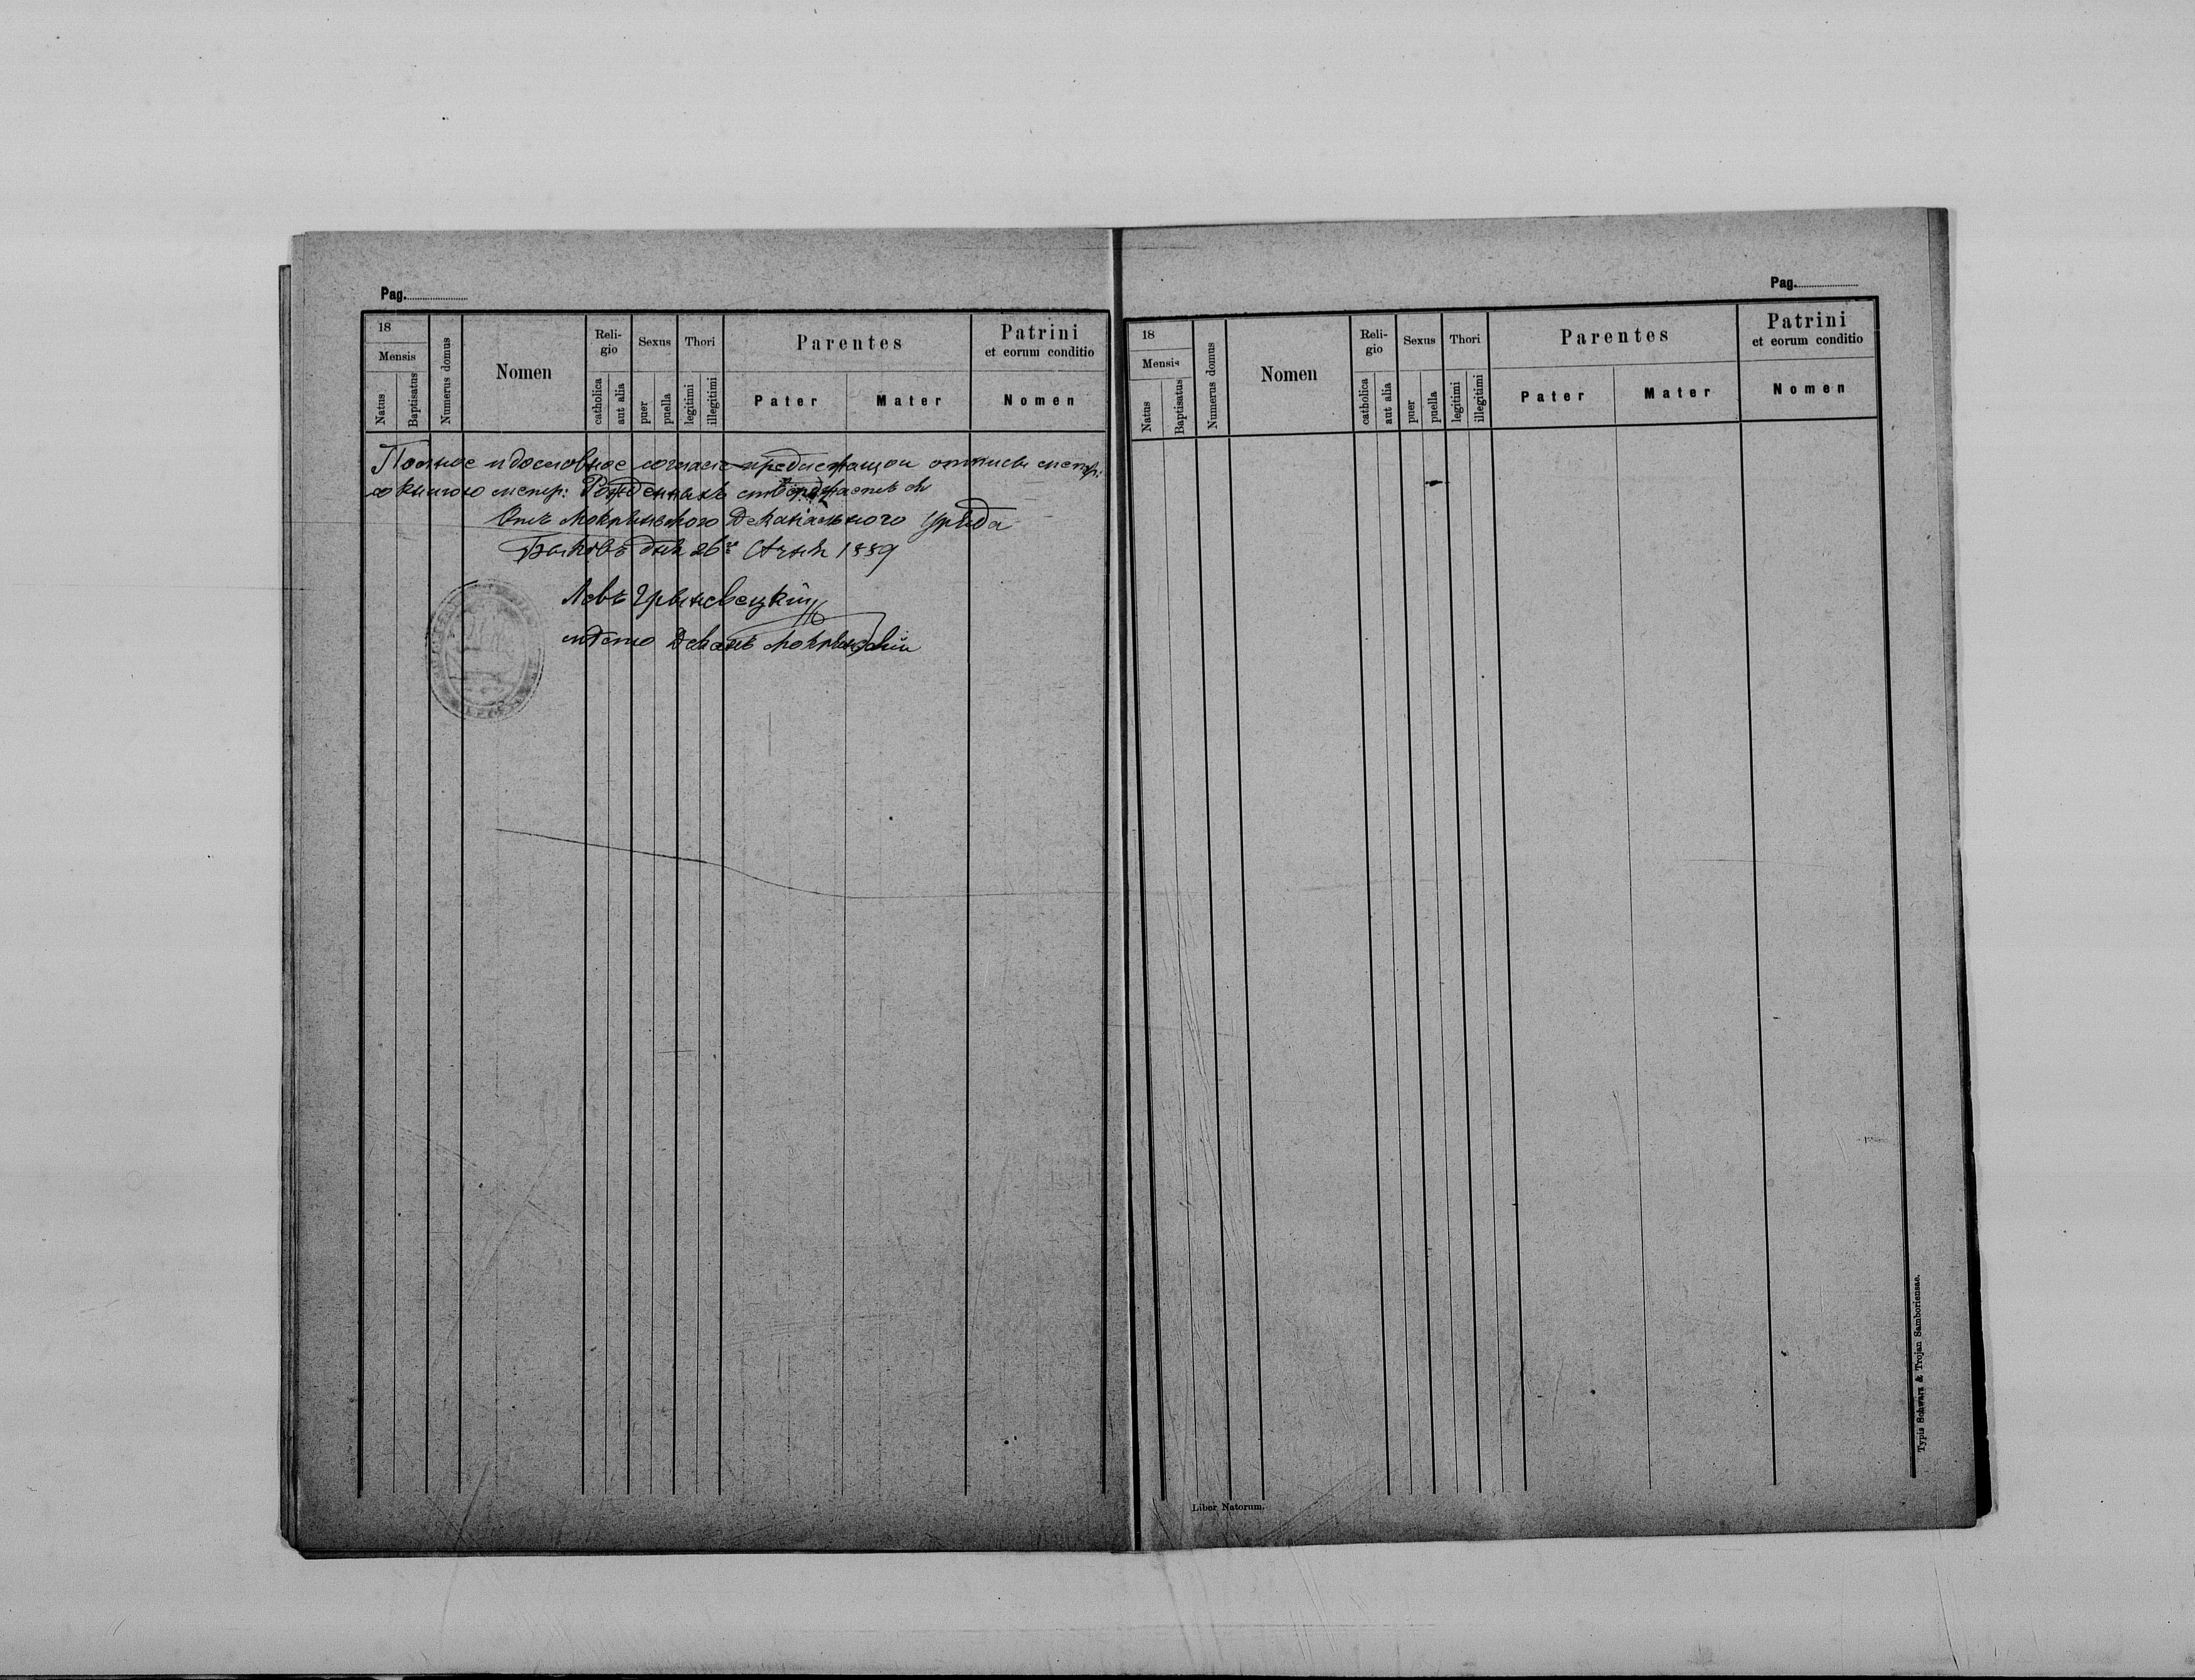 Pag.
18
Mensis
Natus
Baptisatus
Numerus domus
Nomen
Reli-
gio
catholica
aut alia
Sexus
puer
puella
Thori
legitimi
illegitimi
Parentes
Pater
Mater
Patrini
et eorum conditio
Nomen
Полное и дословное согласіе предлежащои отписи метр:
со книгою метр: Рожденныхъ ствержаетъ ся
Отъ Мокрянského Деканального Уряда
Быковъ дня 26го Стычня 1889
Левъ Грыневецкій
мѣстго Деканъ Мокрянскій
Pag.
18
Mensis
Natus
Baptisatus
Numerus domus
Nomen
Reli-
gio
catholica
aut alia
Sexus
puer
puella
Thori
legitimi
illegitimi
Parentes
Pater
Mater
Patrini
et eorum conditio
Nomen
Liber Natorum.
Typis Schwarz & Trojan Samboriensae.